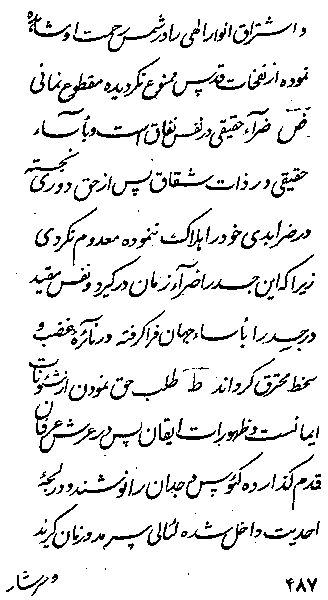 و اشتراق انوار الهی را در شمس رحمت او مشاهده
نموده از نفحات قدس ممنوع نگردیده مقطوع نمانی
ض ضرآء حقیقی در نفس نفاق است و بأسآء
حقیقی در ذات شقاق پس از حق دوری نجسته
در ضر ابدی خود را هلاک ننموده معدوم نگردی
زیرا که این جسد را ضرآء زمان درگیرد و نفس مقید
در جسد را بأساء جهان فرا گرفته در نآئره غضب و
سخط محترق گرداند ط طلب حق نمودن از شئونات
ایمانست و ظهورات ایقان پس در عرش عرفان
قدم گذارده کئوس وجدان را نوشند و در لجهٔ
احدیت داخل شده لئالی سرمد و زنان گیرند
۴۸۷ و سرشار